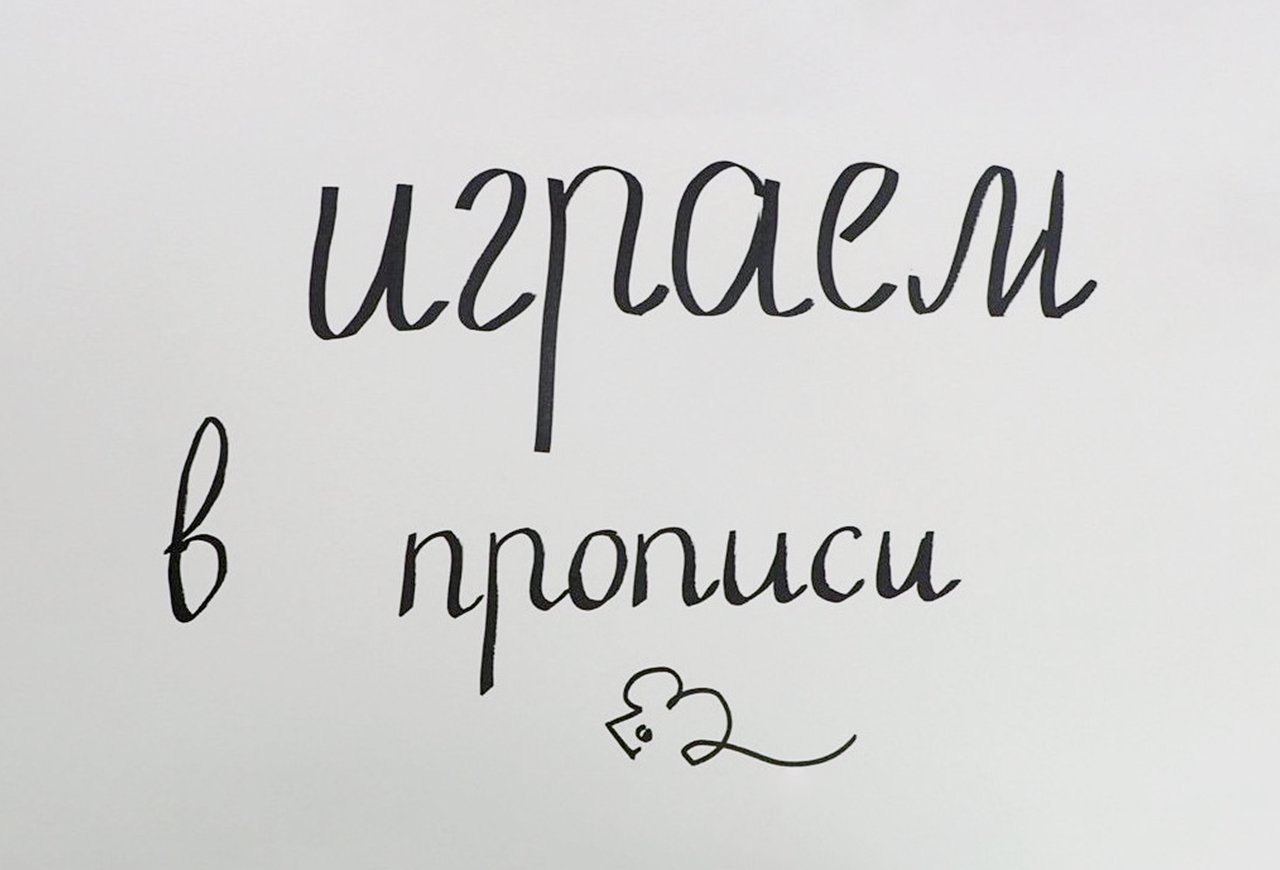 играем
в прописи